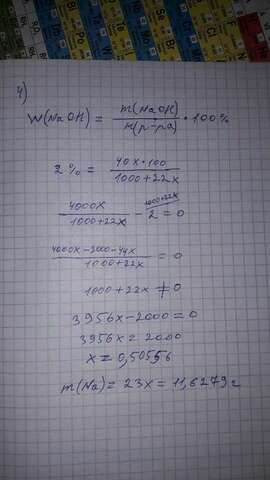 4)
W(NaOH) = m(NaOH) / m(р-ра) • 100%
2% = 40x•100 / 1000+22x
4000x / 1000+22x - 2^(1000+22x) = 0
4000x-2000-44x / 1000+22x = 0
1000+22x ≠ 0
3956x-2000 = 0
3956x = 2000
x = 0,50556
m(Na) = 23x = 11,6279 г